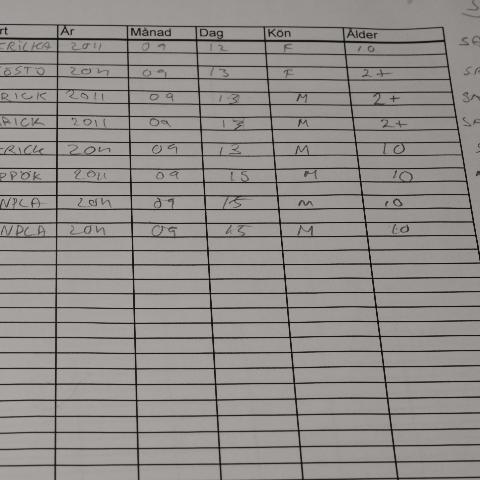 rt År Månad Dag Kön Ålder
ERICKA 2011 09 12 F 10
OSTO 2011 09 13 F 2+
RICK 2011 09 13 M 2+
RICK 2011 09 13 M 2+
ERICK 2011 09 13 M 10
PPOK 2011 09 15 M 10
NPCA 2011 09 15 M 10
NPCA 2011 09 15 M 10